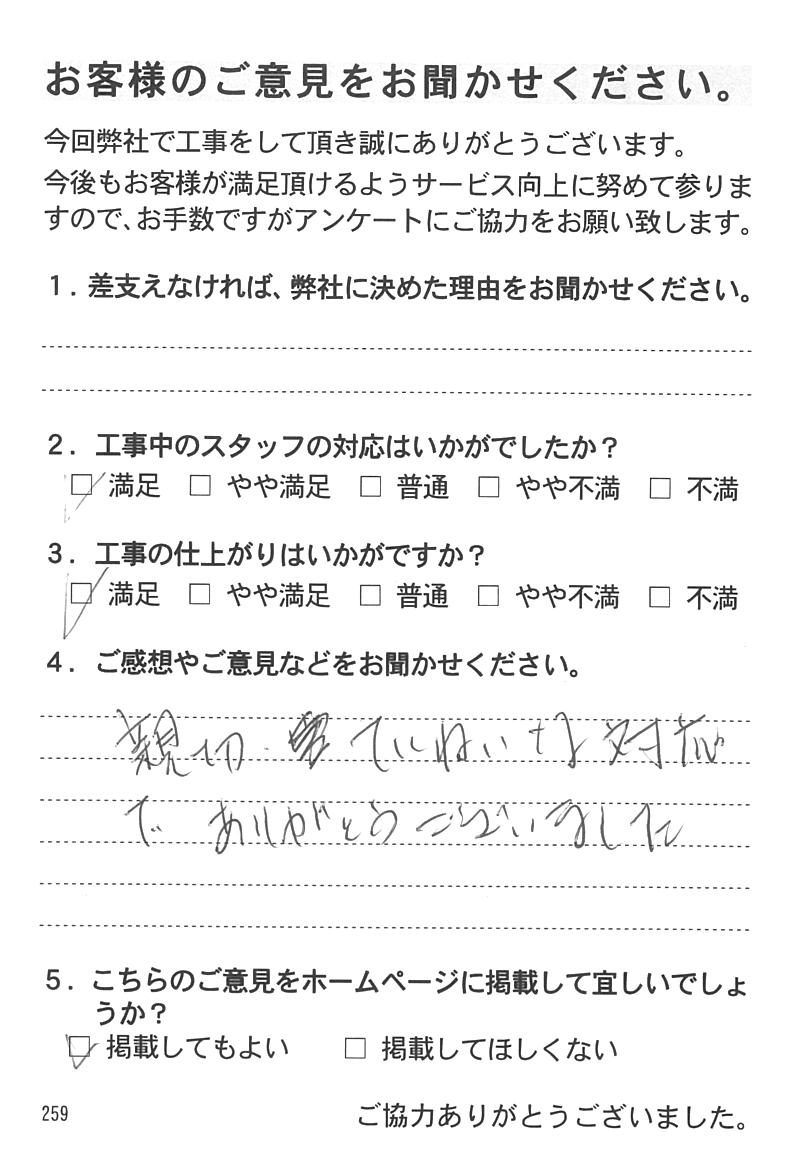 お客様のご意見をお聞かせください。
今回弊社で工事をして頂き誠にありがとうございます。
今後もお客様が満足頂けるようサービス向上に努めて参りま
すので、お手数ですがアンケートにご協力をお願い致します。
1. 差支えなければ、弊社に決めた理由をお聞かせください。
2. 工事中のスタッフの対応はいかがでしたか？
☑ 満足 □ やや満足 □ 普通 □ やや不満 □ 不満
3. 工事の仕上がりはいかがですか？
☑ 満足 □ やや満足 □ 普通 □ やや不満 □ 不満
4. ご感想やご意見などをお聞かせください。
親切・ていねいな対応
で ありがとうございました
5. こちらのご意見をホームページに掲載して宜しいでしょ
うか？
☑ 掲載してもよい □ 掲載してほしくない
259 ご協力ありがとうございました。